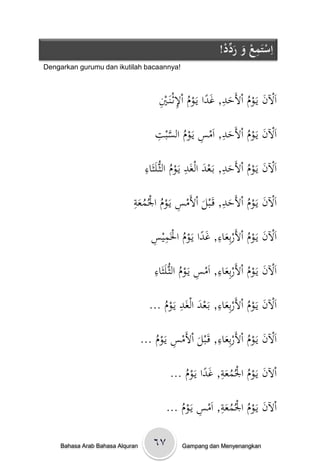 اِسْتَمِعْ وَ رَدِّدْ!
Dengarkan gurumu dan ikutilah bacaannya!
اَلْآنَ يَوْمُ ٱلأَحَدِ, غَدًا يَوْمُ ٱلإِثْنَيْنِ
اَلْآنَ يَوْمُ ٱلأَحَدِ, اَمْسِ يَوْمُ السَّبْتِ
اَلْآنَ يَوْمُ ٱلأَحَدِ, بَعْدَ الْغَدِ يَوْمُ الثُّلَثَاءِ
اَلْآنَ يَوْمُ ٱلأَحَدِ, قَبْلَ ٱلأَمْسِ يَوْمُ الْجُمُعَةِ
اَلْآنَ يَوْمُ ٱلأَرْبِعَاءِ, غَدًا يَوْمُ الْخَمِيْسِ
اَلْآنَ يَوْمُ ٱلأَرْبِعَاءِ, اَمْسِ يَوْمُ الثُّلَثَاءِ
اَلْآنَ يَوْمُ ٱلأَرْبِعَاءِ, بَعْدَ الْغَدِ يَوْمُ ...
اَلْآنَ يَوْمُ ٱلأَرْبِعَاءِ, قَبْلَ ٱلأَمْسِ يَوْمُ ...
اَلْآنَ يَوْمُ الْجُمُعَةِ, غَدًا يَوْمُ ...
اَلْآنَ يَوْمُ الْجُمُعَةِ, اَمْسِ يَوْمُ ...
Bahasa Arab Bahasa Alquran ٦٧ Gampang dan Menyenangkan